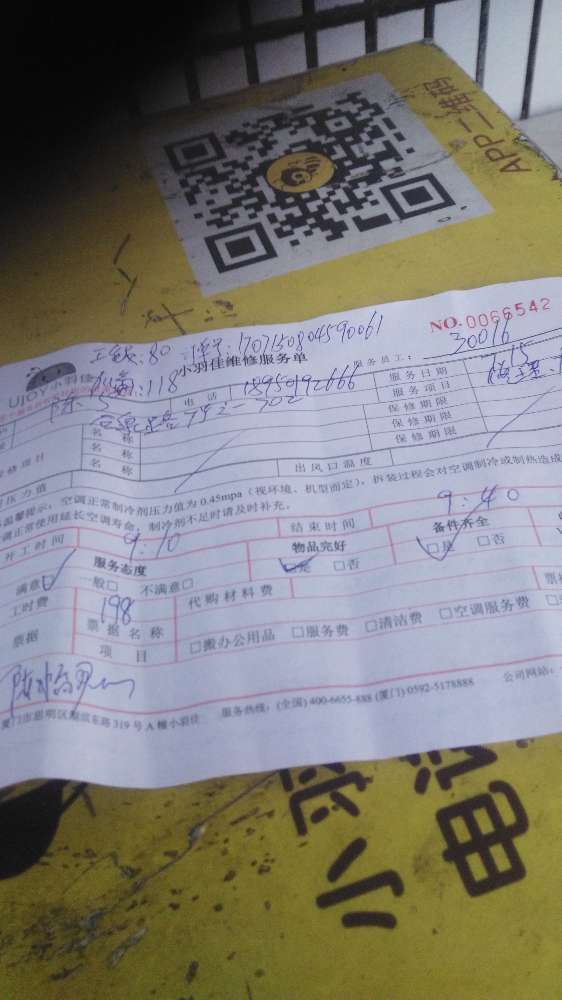 APP二维码
NO.0066542
工钱:80 单号:1707150804590061
小羽佳维修服务单
UJOY 小羽佳
服务员工: 30016
:118
电话 18950192666
服务日期
792-302
服务项目
名称
保修期限
名称
保修期限
名称
保修期限
修项目
出风口温度
压力值
温馨提示:空调正常制冷剂压力值为 0.45mpa(视环境、机型而定),拆装过程会对空调制冷或制热造成
调正常使用延长空调寿命,制冷剂不足时请及时补充。
开工时间 9:10
结束时间 9:40
服务态度
物品完好
备件齐全
满意 一般□ 不满意□
□是 □否
□是 □否
工时费 198
代购材料费
票据
票据名称
项目
□搬办公用品 □服务费 □清洁费 □空调服务费
厦门市思明区湖滨东路 319 号 A 幢小羽佳 服务热线:(全国)400-6655-888 (厦门)0592-5178888 公司网站: